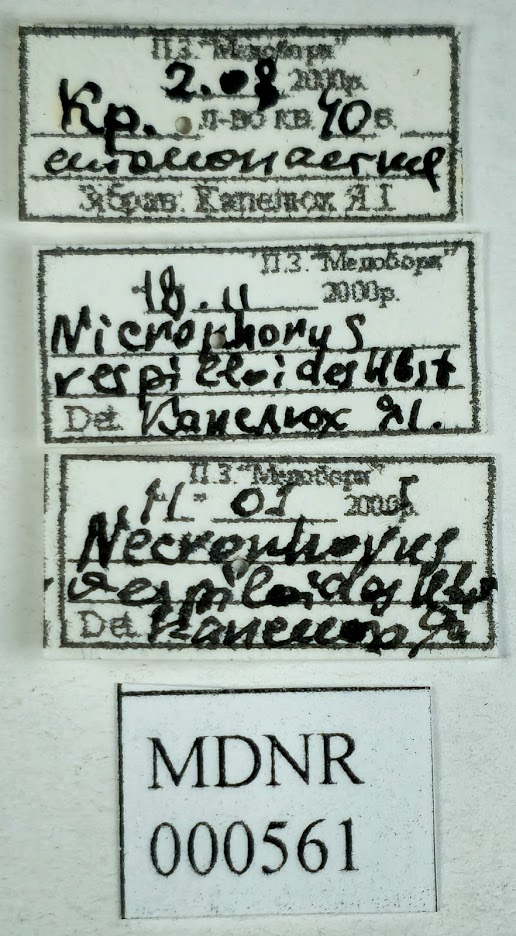 П.З. "Медобори"
2.08 2000р.
Кр. л-во кв. 40 в.
ентомопастка
Зібрав: Капелюх Я.І
П.З. "Медобори"
18.11 2000р.
Nicrophorus
vespilloides Hbst
Det. Капелюх Я.І.
П.З. "Медобори"
"11" 01 2000р.
Necrophorus
vespiloides Hbst
Det. Капелюх Я.
MDNR
000561